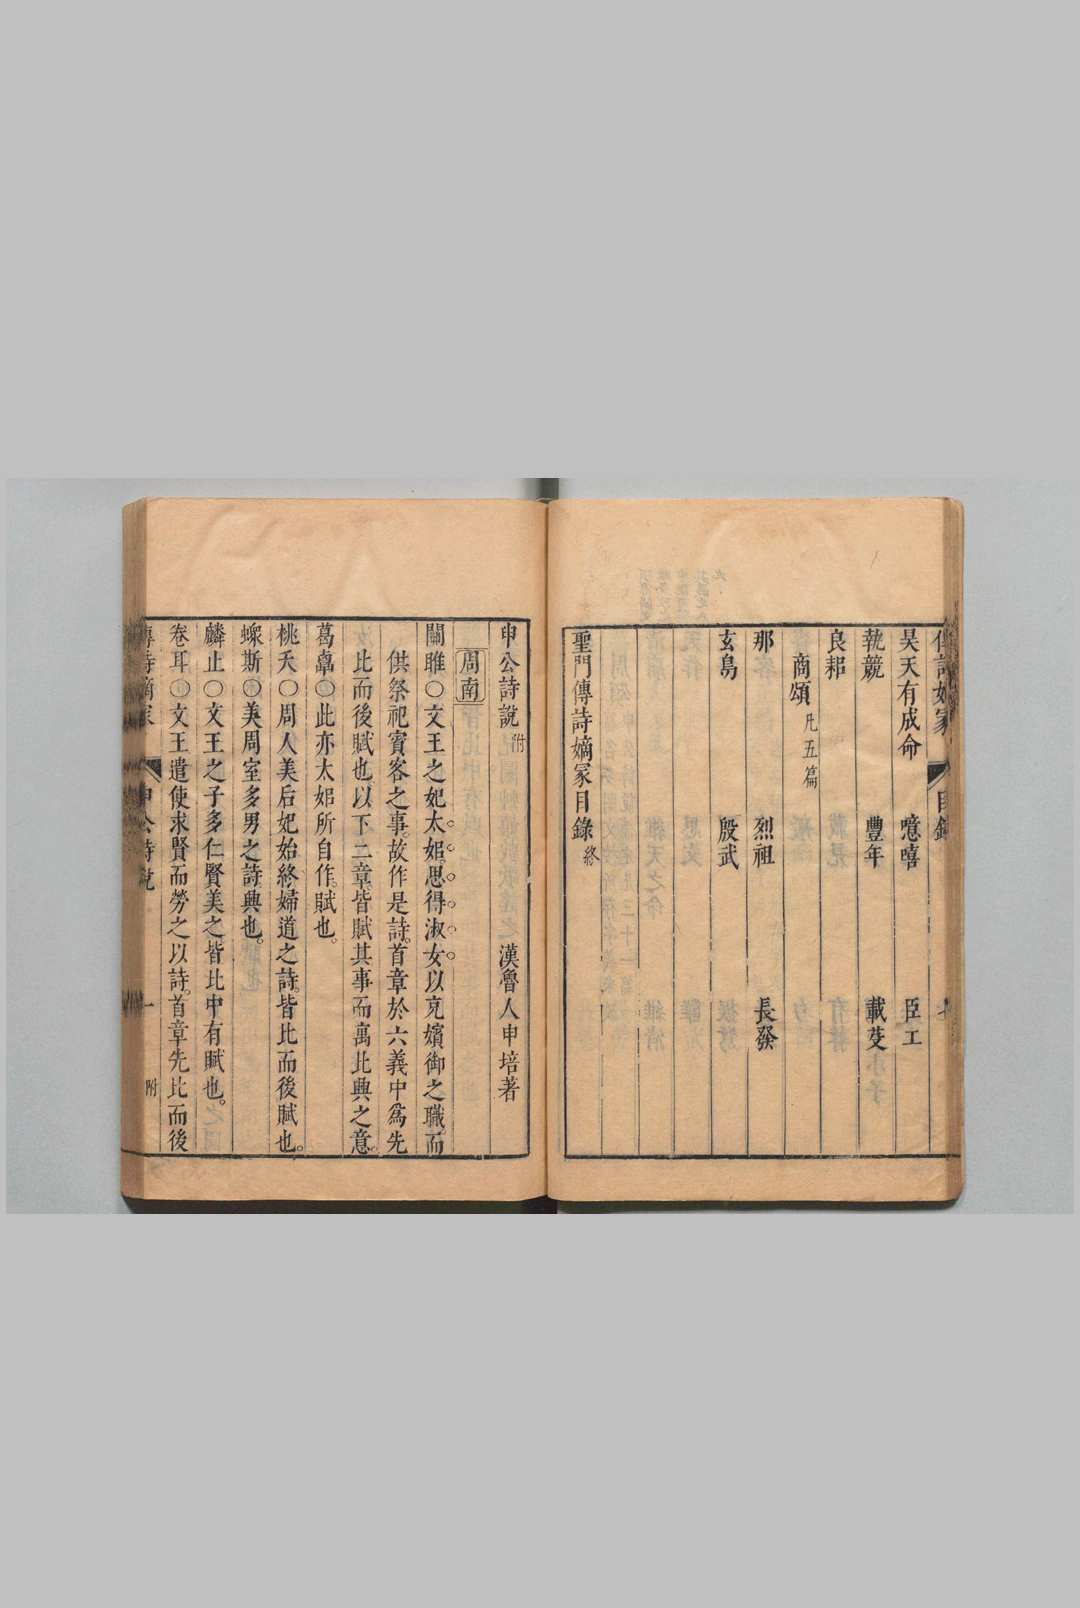 昊天有成命　噫嘻　臣工
執競　豐年　載芟
良耜
商頌 凡五篇
那　烈祖　長發
玄鳥　殷武
聖門傳詩嫡冢目錄 終
申公詩說 附　漢魯人申培著
周南
關雎〇文王之妃太姒思得淑女以充嬪御之職而
供祭祀賓客之事故作是詩首章於六義中爲先
比而後賦也以下二章皆賦其事而寓比興之意
葛覃〇此亦太姒所自作賦也
桃夭〇周人美后妃始終婦道之詩皆比而後賦也
螽斯〇美周室多男之詩興也
麟止〇文王之子多仁賢美之皆比中有賦也
卷耳〇文王遣使求賢而勞之以詩首章先比而後
傳詩嫡冢　申公詩說　一　附